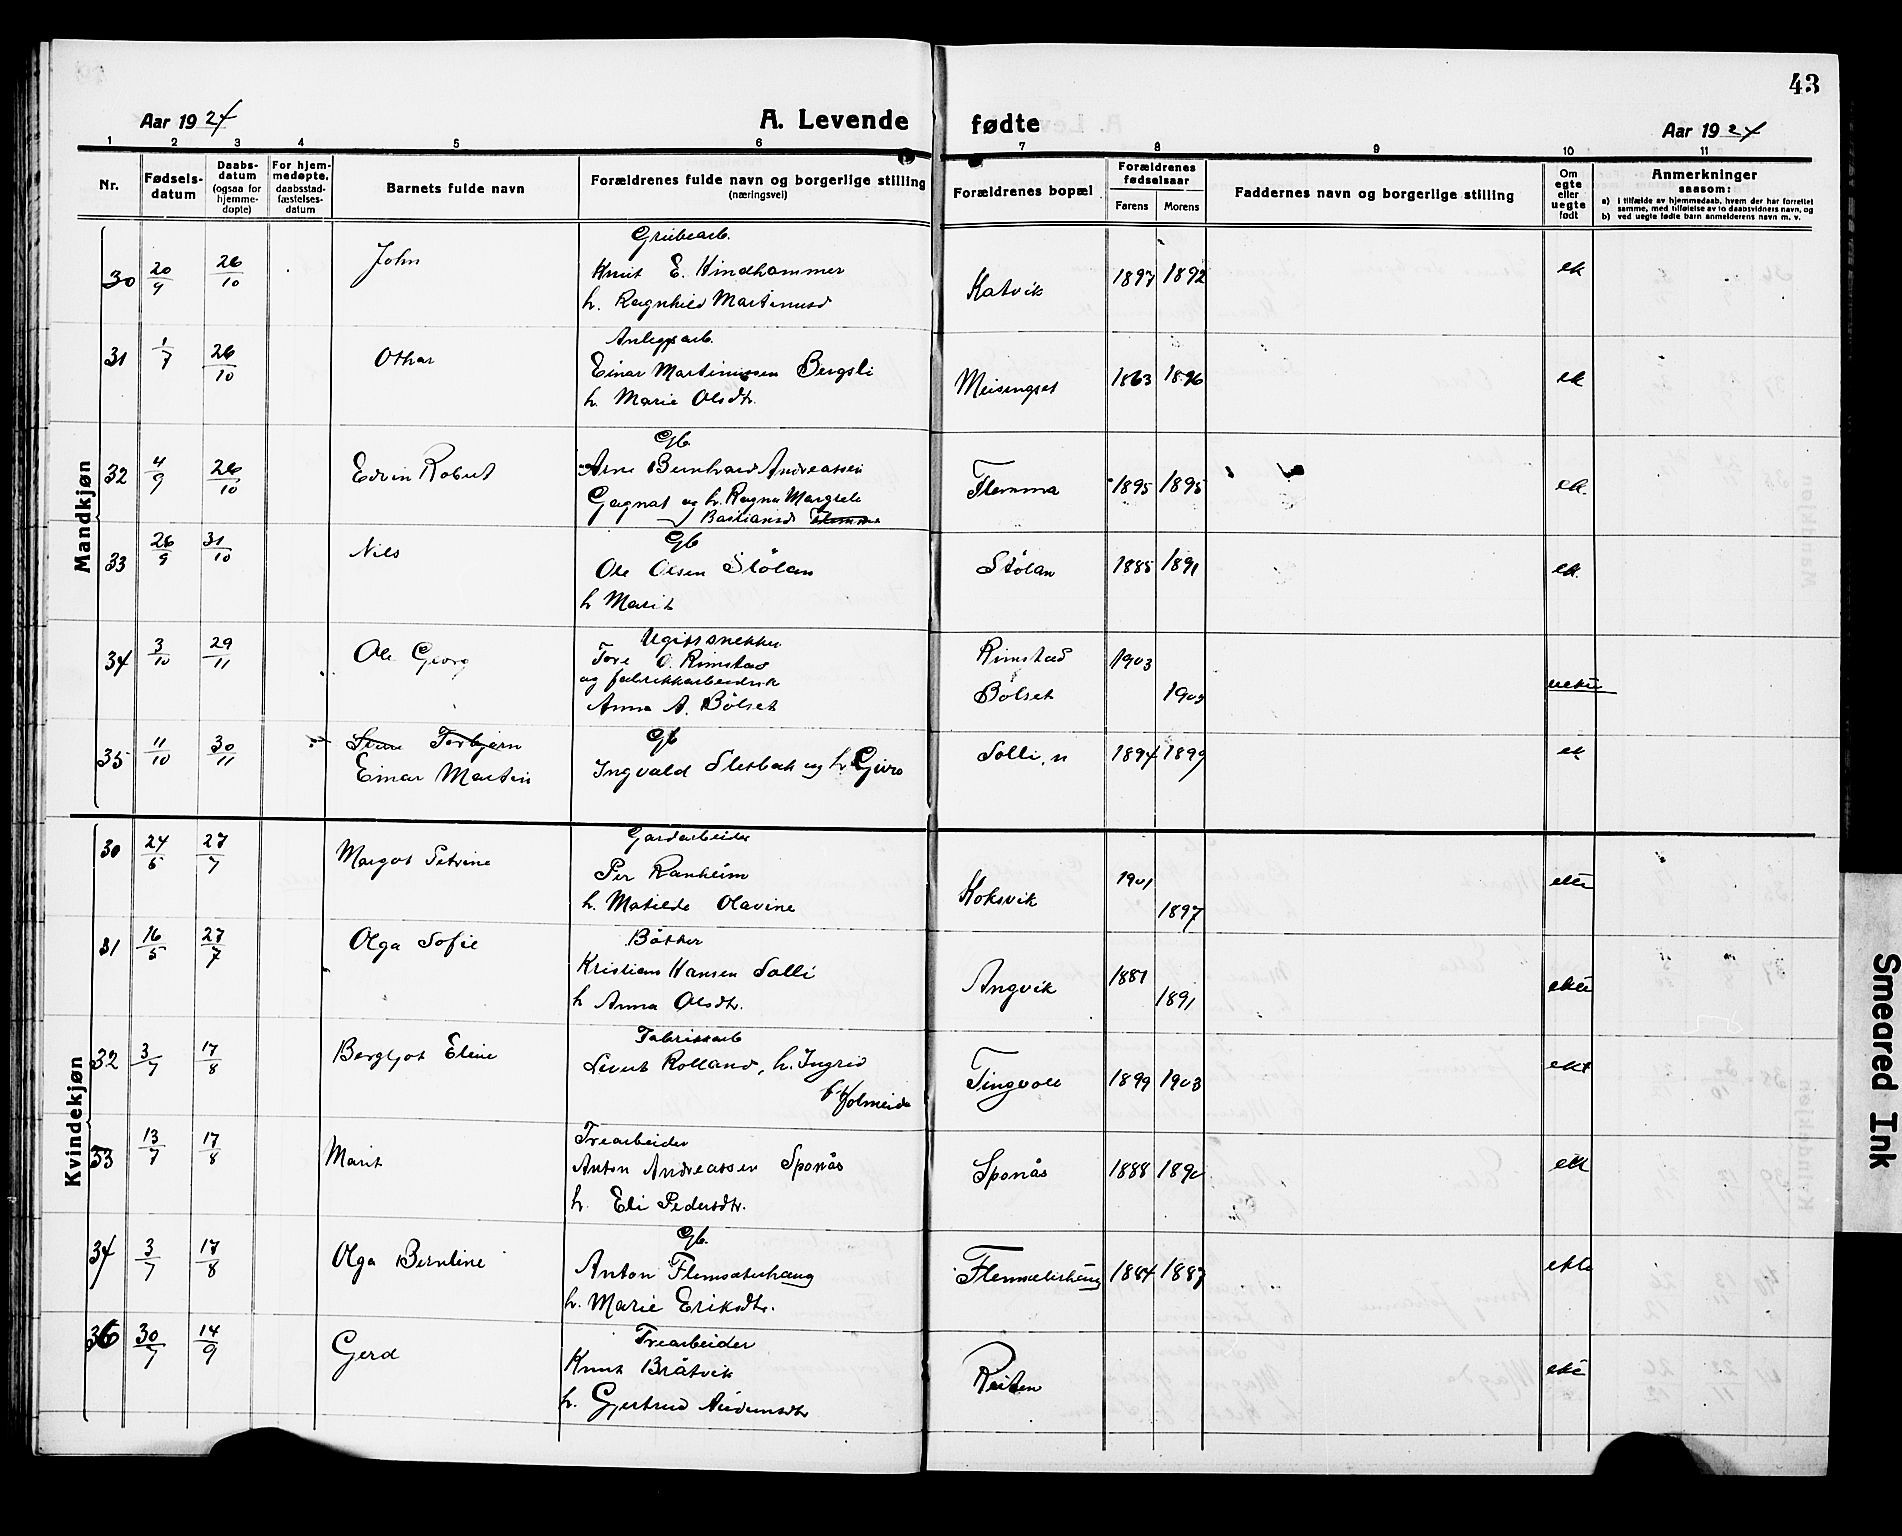 43
Aar 1924
A. Levende fødte
Aar 1924
1 2 3 4 5 6 7 8 9 10 11
Nr.
Fødsels-
datum
Daabs-
datum
(ogsaa for
hjemme-
døpte)
For hjem-
medøpte,
daabsstad-
fæstelses-
datum
Barnets fulde navn
Forældrenes fulde navn og borgerlige stilling
(næringsvei)
Forældrenes bopæl
Forældrenes
fødselsaar
Farens Morens
Faddernes navn og borgerlige stilling
Om
egte
eller
uegte
født
Anmerkninger
saasom:
a) i tilfælde av hjemmedaab, hvem der har forrettet
samme, med tilføielse av to daabsvidners navn, og
b) ved uegte fødte barn anmelderens navn m. v.
Mandkjøn
Grubearb.
30 20/9 26/10 John Knut E. Hindhammer Katvik 1897 1892 ek
h. Ragnhild Martinusd
Anleggsarb.
31 1/7 26/10 Othar Einar Martinussen Bergsli Meisingset 1863 1896 ek
h. Marie Olsdtr.
Gb.
32 4/9 26/10 Edvin Robert Arne Bernhard Andreassen Flemma 1895 1895 ek.
Gagnat og h. Ragna
Bastiansd Flemma
Gb
33 26/9 31/10 Nils Ole Olsen Stølan Stølan 1885 1891 ek.
h Marit
Ugift snekker
34 3/10 29/11 Ole Georg Tore O. Rimstad Rimstad 1903
og fabrikkarbeiderske
Anna A. Bølset Bølset
Gb
35 11/10 30/11 Torbjørn
Einar Martin Ingvald Sletbak og h. Guro Solli, n 1894 1899 ek
Kvindekjøn
Gardarbeider
30 24/5 27/7 Margot Petrine Per Ranheim Koksvik 1901
h. Matilde Olavine 1897
31 16/5 27/7 Olga Sofie Bøkker
Kristian Hansen Solli Angvik 1881
h Anna Olsdtr. 1891
Fabrikkarb
32 3/7 17/8 Bergljot Eline Sivert Rolland, h. Ingrid Tingvoll 1899 1903 ekt
f. Holmeide
Trearbeider
33 13/7 17/8 Marit Anton Andreassen Sponås Sponås 1888 1890
h. Eli Pedersdtr.
Gb.
34 3/7 17/8 Olga Berntine Anton Flemsæterhaug Flemsæterhaug 1884 1887 ekte
h. Marie Eriksdtr.
Trearbeider
36 30/7 14/9 Gerd Knut Bråtvik Reiten
h. Gjertrud
Smeared Ink